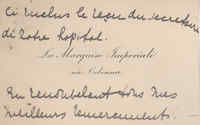 Ci inclus le reçu du secretaire
de votre hopital.
La Marquise Imperiali
née Colonna
En renouvelant tous mes
meilleurs remerciements.